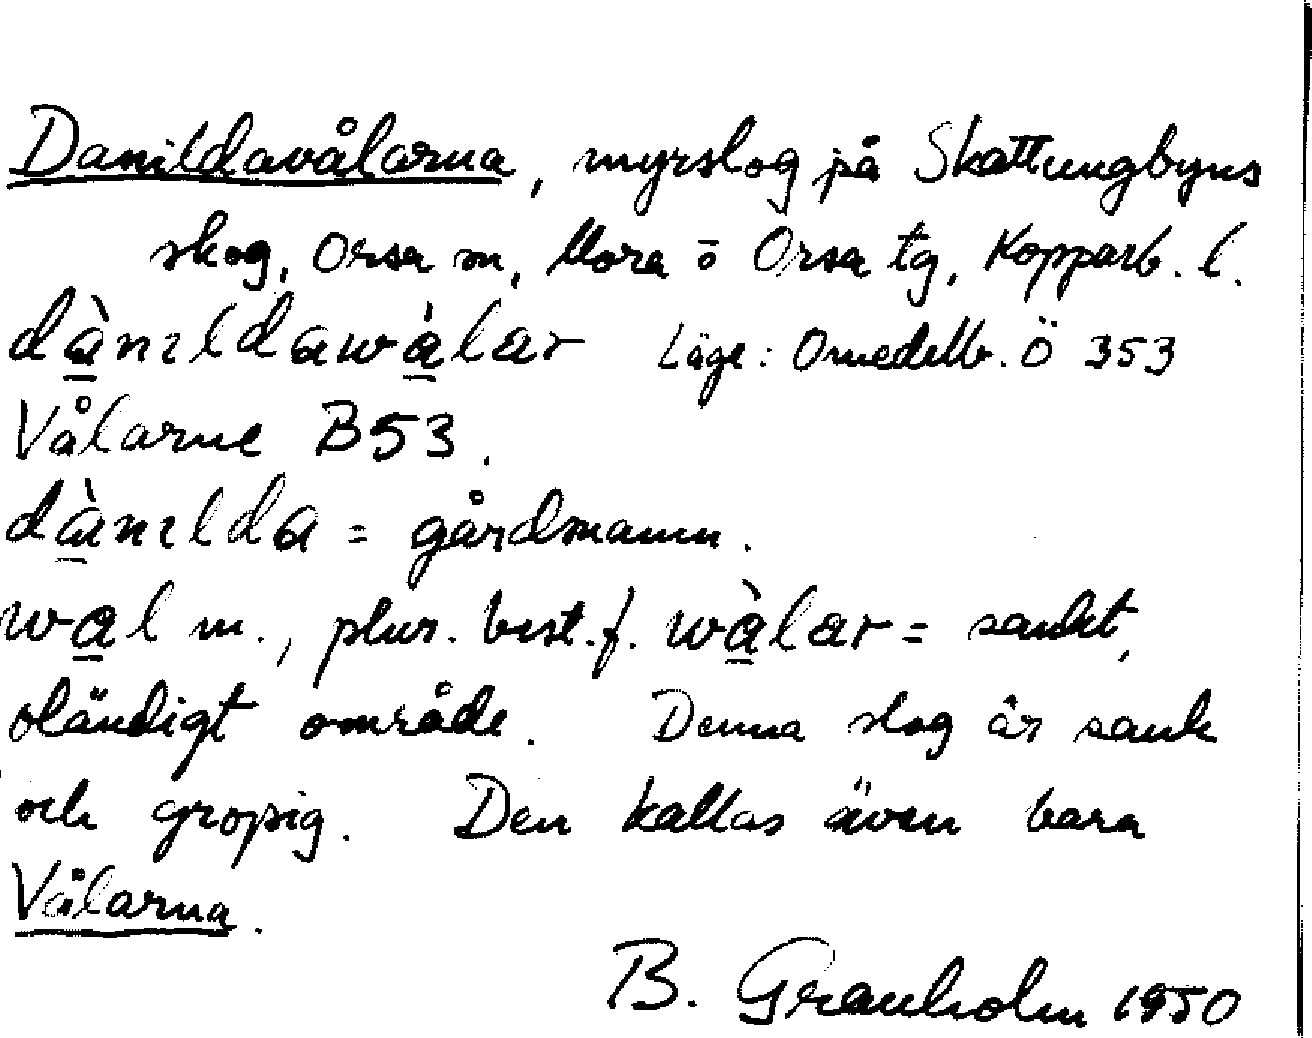 Danildavålarna, myrslog på Skattungbyns
skog, Orsa sn, Mora o Orsa tg, Kopparb. l.
dànıldawàlar Läge: Omedelb. Ö 353
Vålarne B53.
dànılda = gårdmamn.
wal m., plur. best. f. wàlar = sankt,
oländigt område. Denna slog är sank
och gropig. Den kallas även bara
Vålarna.
B. Granholm 1950